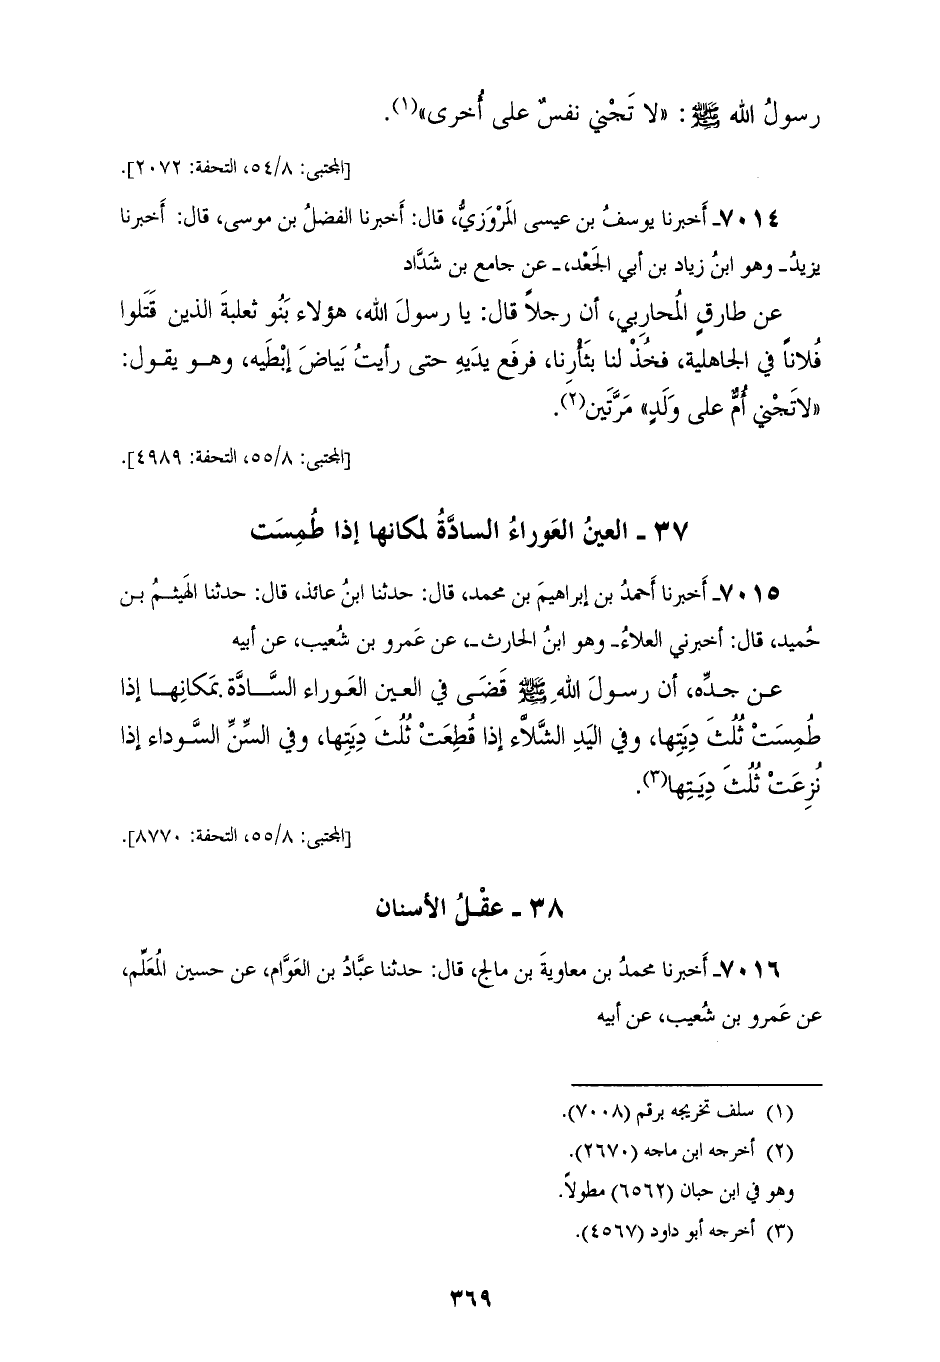 رسولُ الله ﷺ: «لا تَجْني نفسٌ على أُخرى»(١).
[المجتبى: ٥٤/٨، التحفة: ٢٠٧٢].
٧٠١٤ـ أَخبرنا يوسفُ بن عيسى المَرْوَزيُّ، قال: أَخبرنا الفضلُ بن موسى، قال: أَخبرنا
يزيدُ ـ وهو ابنُ زياد بن أبي الجَعْد، ـ عن جامع بن شَدَّاد
عن طارقٍ المُحارِبي، أن رجلاً قال: يا رسولَ الله، هؤلاء بَنُو ثعلبةَ الذين قَتَلوا
فُلاناً في الجاهلية، فخُذْ لنا بثَأْرِنا، فرفَع يدَيهِ حتى رأيتُ بَياضَ إبْطَيه، وهـو يقـول:
«لاتَجْني أُمٌّ على ولَدٍ» مَرَّتَين(٢).
[المجتبى: ٥٥/٨، التحفة: ٤٩٨٩].
٣٧ ـ العينُ العَوراءُ السادَّةُ لمكانها إذا طُمِسَت
٧٠١٥ـ أَخبرنا أَحمدُ بن إبراهيمَ بن محمد، قال: حدثنا ابنُ عائذ، قال: حدثنا الهَيثـمُ بـن
حُميد، قال: أخبرني العلاءُ ـ وهو ابنُ الحارث ـ، عن عَمرو بن شُعيب، عن أبيه
عـن جـدِّه، أن رسـولَ اللهِ ﷺ قَضَـى في العـين العَـوراء السَّـادَّة بمَكانِهـا إذا
طُمِسَتْ ثُلُثَ دِيَتِها، وفي اليَدِ الشَّلاَّء إذا قُطِعَتْ ثُلُثَ دِيَتِها، وفي السِّنِّ السَّوداء إذا
نُزِعَتْ ثُلُثَ دِيَتِها(٣).
[المجتبى: ٥٥/٨، التحفة: ٨٧٧٠].
٣٨ ـ عقْـلُ الأسنان
٧٠١٦ـ أَخبرنا محمدُ بن معاويةَ بن مالج، قال: حدثنا عبَّادُ بن العَوَّام، عن حسين المُعَلِّم،
عن عَمرو بن شُعيب، عن أبيه
(١) سلف تخريجه برقم (٧٠٠٨).
(٢) أخرجه ابن ماجه (٢٦٧٠).
وهو في ابن حبان (٦٥٦٢) مطولاً.
(٣) أخرجه أبو داود (٤٥٦٧).
٣٦٩